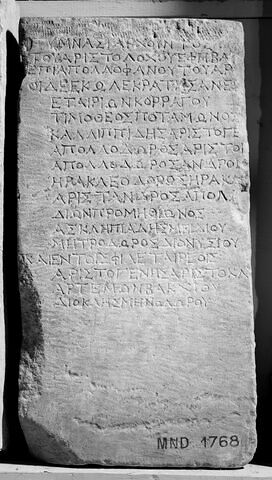 ΓΥΜΝΑΣΙΑΡΧΟΥΝΤΟΣ
ΤΟΥΑΡΙΣΤΟΛΟΧΟΥ
ΕΠΙΑΠΟΛΛΟΦΑΝΟΥΤΟΥ
ΟΙΔΕΕΚΩΛΕΚΡΑΤΗΣΑΝ
ΕΤΑΙΡΙΩΝΚΟΡΡΑΓΟΥ
ΤΙΜΟΘΕΟΣΠΟΤΑΜΩΝΟΣ
ΚΑΛΛΙΠΠΙΔΗΣΑΡΙΣΤΟΓΕ
ΑΠΟΛΛΟΔΩΡΟΣΑΡΙΣΤΟ
ΑΠΟΛΛΟΔΩΡΟΣ
ΗΡΑΚΛΕΟΔΩΡΟΣΗΡΑΚ
ΑΡΙΣΤΑΝΔΡΟΣΑΠΟΛ
ΔΙΩΝΠΡΟΜΗΘΙΩΝΟΣ
ΑΣΚΛΗΠΙΑΔΗΣ
ΜΗΤΡΟΔΩΡΟΣΔΙΟΝΥΣΙΟΥ
ΒΑΙΕΝΤΟΣΦΙΛΕΤΑΙΡΕΙΟΣ
ΑΡΙΣΤΟΓΕΝΗΣΑΡΙΣΤΟΚΛ
ΑΡΤΕΜΩΝΒΑΚΧΙΟΥ
ΔΙΟΚΛΗΣΜΗΝΟΔΩΡΟΥ
MND 1768